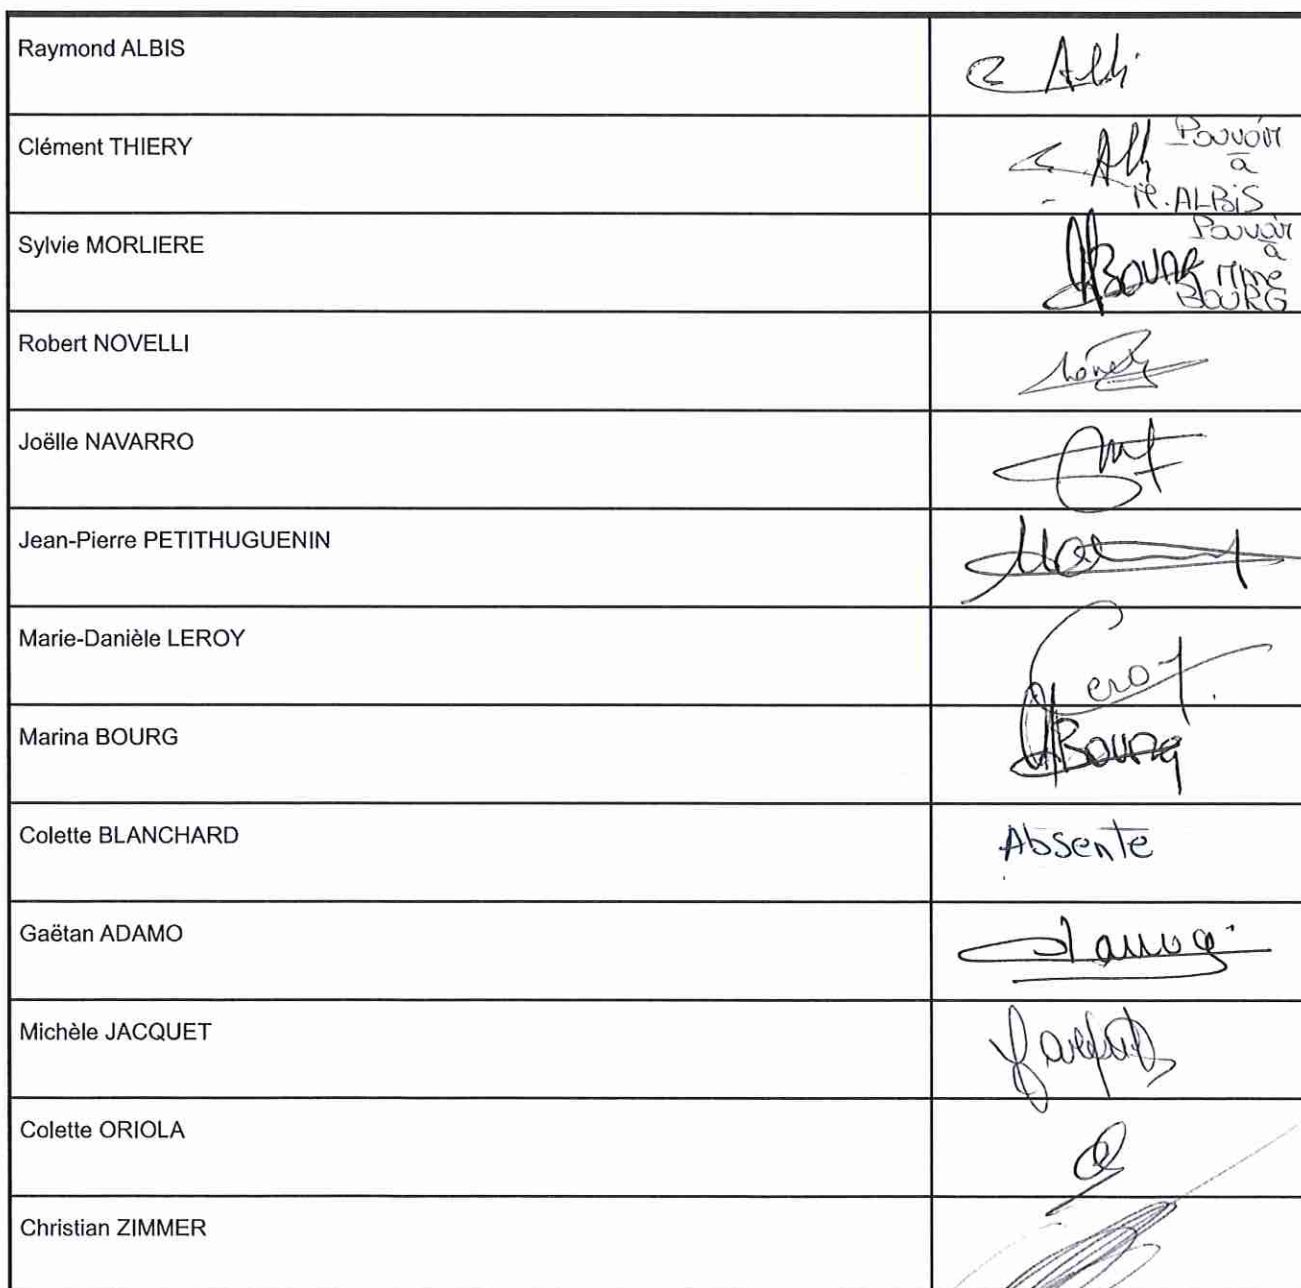 Raymond ALBIS
Clément THIERY
Pouvoir
à
M. ALBIS
Sylvie MORLIERE
Pouvoir
à
BOURG Mme
BOURG
Robert NOVELLI
Joëlle NAVARRO
Jean-Pierre PETITHUGUENIN
Marie-Danièle LEROY
Leroy
Marina BOURG
BOURG
Colette BLANCHARD
Absente
Gaëtan ADAMO
Michèle JACQUET
Colette ORIOLA
Christian ZIMMER